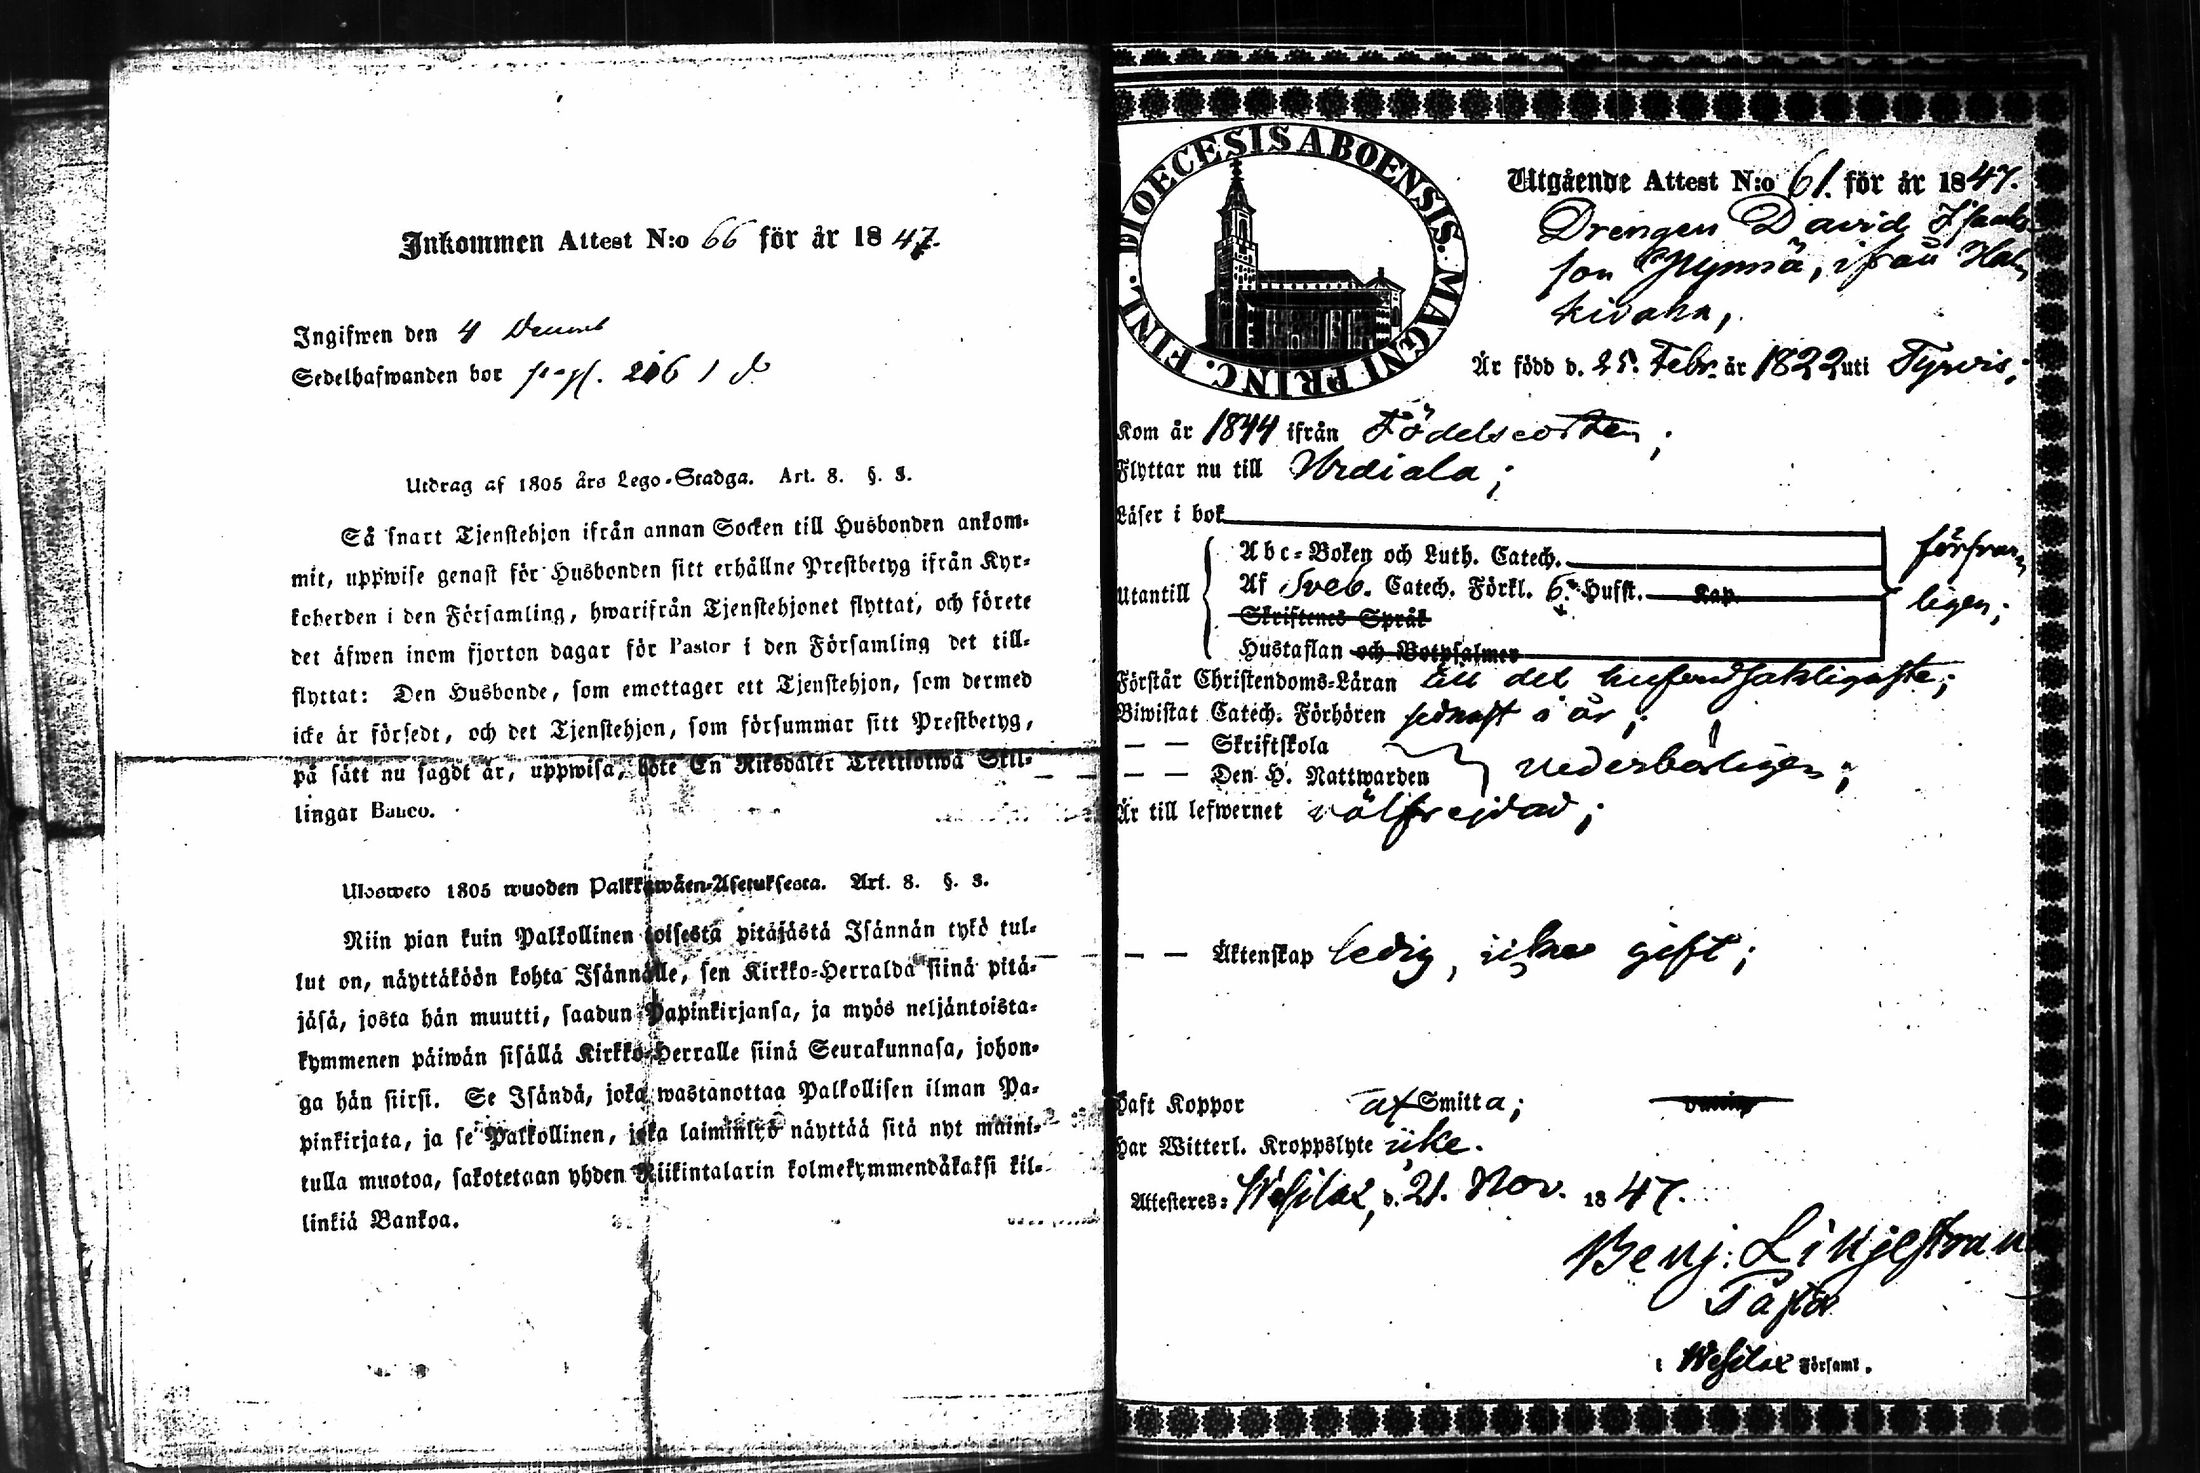 Inkommen Attest N:o 66 för år 1847.
Ingifwen den 4
Sedelhafwanden bor
Utdrag af 1805 års Lego-Stadga. Art. 8. §. 3.
Så snart Tjenstehjon ifrån annan Socken till Husbonden ankom-
mit, uppwise genast för Husbonden sitt erhållne Prestbetyg ifrån Kyr-
koherden i den Församling, hwarifrån Tjenstehjonet flyttat, och förete
det äfwen inom fjorton dagar för Pastor i den Församling det till-
flyttat: Den Husbonde, som emottager ett Tjenstehjon, som dermed
icke är försedt, och det Tjenstehjon, som försummar sitt Prestbetyg,
på sätt nu sagdt är, uppwisa, böte En Riksdaler Trettiotwå Skil-
lingar Banco.
Ulosweto 1805 wuoden Palkkawäen-Asetuksesta. Art. 8. §. 3.
Niin pian kuin Palkollinen toisesta pitäjästä Isännän tykö tul-
lut on, näyttäköön kohta Isännälle, sen Kirkko-Herralda siinä pitä-
jäsä, josta hän muutti, saadun Papinkirjansa, ja myös neljäntoista-
kymmenen päiwän sisällä Kirkko-Herralle siinä Seurakunnasa, johon-
ga hän siirsi. Se Isändä, joka wastanottaa Palkollisen ilman Pa-
pinkirjata, ja se Palkollinen, joka laiminlyö näyttää sitä nyt maini-
tulla muotoa, sakotetaan yhden Riikintalarin kolmekymmendäkaksi kil-
linkiä Bankoa.
FINL. DIOECESIS ABOENSIS. MAGNI PRINC.
Utgående Attest N:o 61. för år 1847.
Drengen David Isaks
son Nynnä, ifrån Hal
kivaha,
Är född d. 25. Febr. år 1822 uti Tyrvis;
Kom år 1844 ifrån Födelseorten;
Flyttar nu till Urdiala;
Läser i bok
Utantill
Abc-Boken och Luth. Catech.
Af Sveb. Catech. Förkl. 6. Hufst. Kap.
Skriftenes Språk
Hustaflan och Botpsalmer
försvar
ligen;
Förstår Christendoms-Läran till det hufvudsakligaste;
Biwistat Catech. Förhören sednast i år;
— — Skriftskola
— — Den H. Nattwarden vederbörligen;
Är till lefwernet välfrejdad;
— — Äktenskap ledig, icke gift;
Haft Koppor af Smitta;
Har Witterl. Kroppslyte icke.
Attesteres: Wesilax, d. 21. Nov. 1847.
Benj: Liljestran
Pastor
i Wesilax Församl.